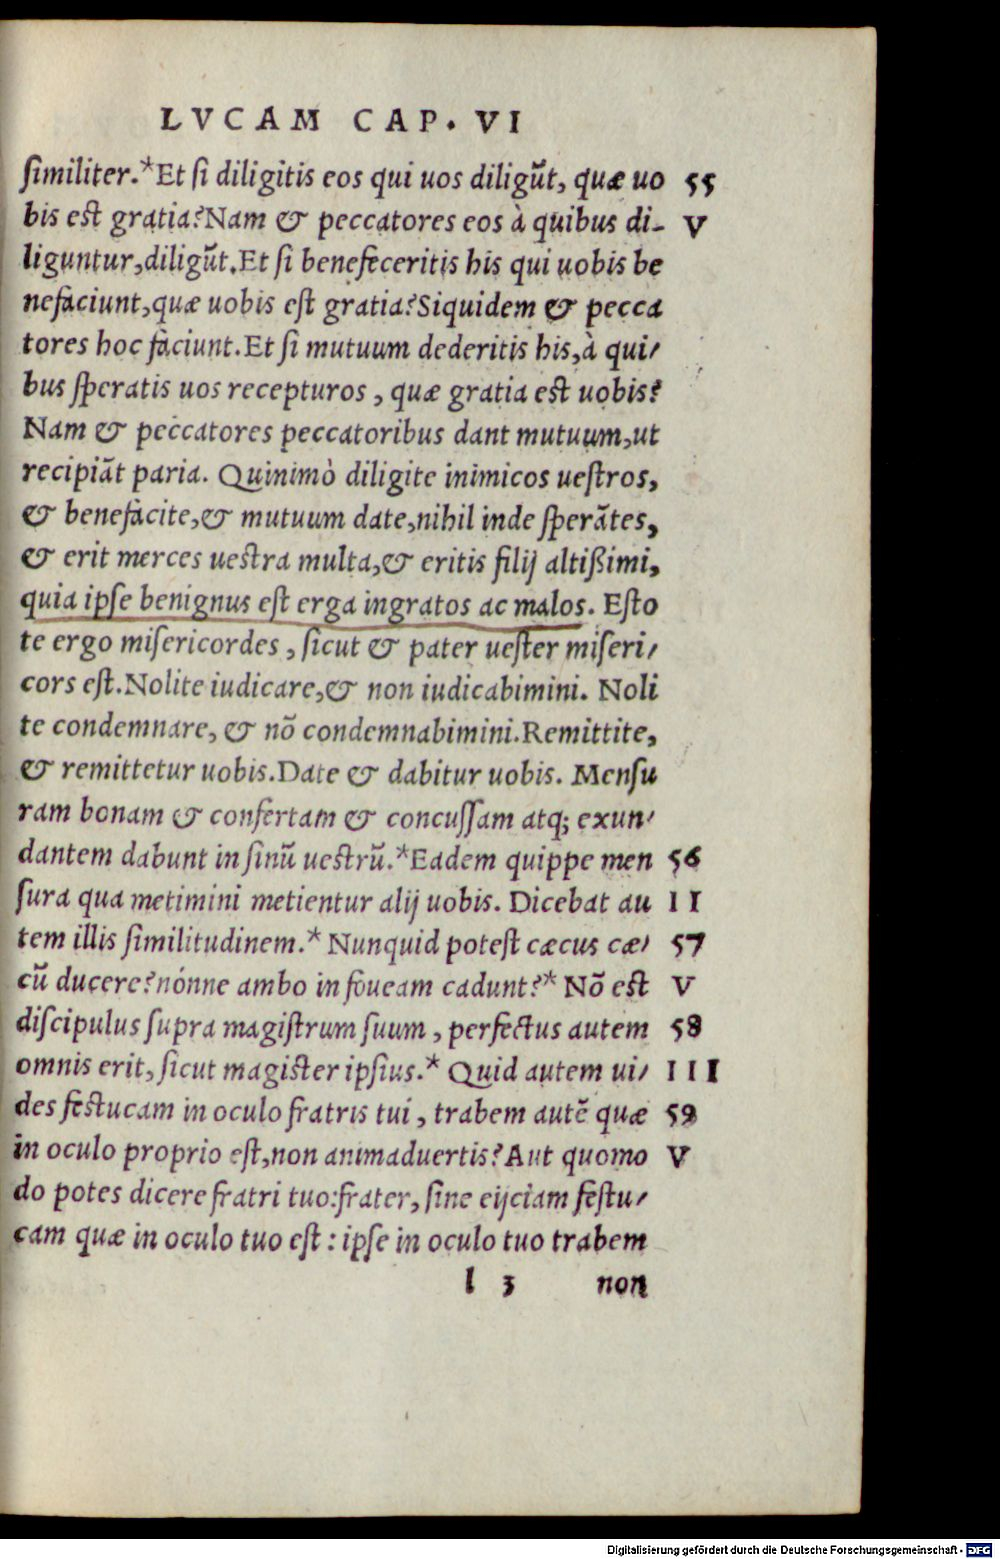 LVCAM CAP. VI
similiter.*Et si diligitis eos qui uos diligūt, quæ uo 55
bis est gratia?Nam & peccatores eos à quibus di- V
liguntur,diligūt.Et si benefeceritis his qui uobis be
nefaciunt,quæ uobis est gratia?Siquidem & pecca
tores hoc faciunt.Et si mutuum dederitis his,à qui/
bus speratis uos recepturos , quæ gratia est uobis?
Nam & peccatores peccatoribus dant mutuum,ut
recipiāt paria. Quinimò diligite inimicos uestros,
& benefacite,& mutuum date,nihil inde sperātes,
& erit merces uestra multa,& eritis filij altißimi,
quia ipse benignus est erga ingratos ac malos. Esto
te ergo misericordes , sicut & pater uester miseri/
cors est.Nolite iudicare,& non iudicabimini. Noli
te condemnare, & nō condemnabimini.Remittite,
& remittetur uobis.Date & dabitur uobis. Mensu
ram bonam & confertam & concussam atq; exun/
dantem dabunt in sinū uestrū.*Eadem quippe men 56
sura qua metimini metientur alij uobis. Dicebat au II
tem illis similitudinem.* Nunquid potest cæcus cæ/ 57
cū ducere?nónne ambo in foueam cadunt?* Nō est V
discipulus supra magistrum suum , perfectus autem 58
omnis erit, sicut magister ipsius.* Quid autem ui/ III
des festucam in oculo fratris tui , trabem autē quæ 59
in oculo proprio est,non animaduertis?Aut quomo V
do potes dicere fratri tuo:frater, sine eijciam festu/
cam quæ in oculo tuo est : ipse in oculo tuo trabem
l 3 non
Digitalisierung gefördert durch die Deutsche Forschungsgemeinschaft - DFG